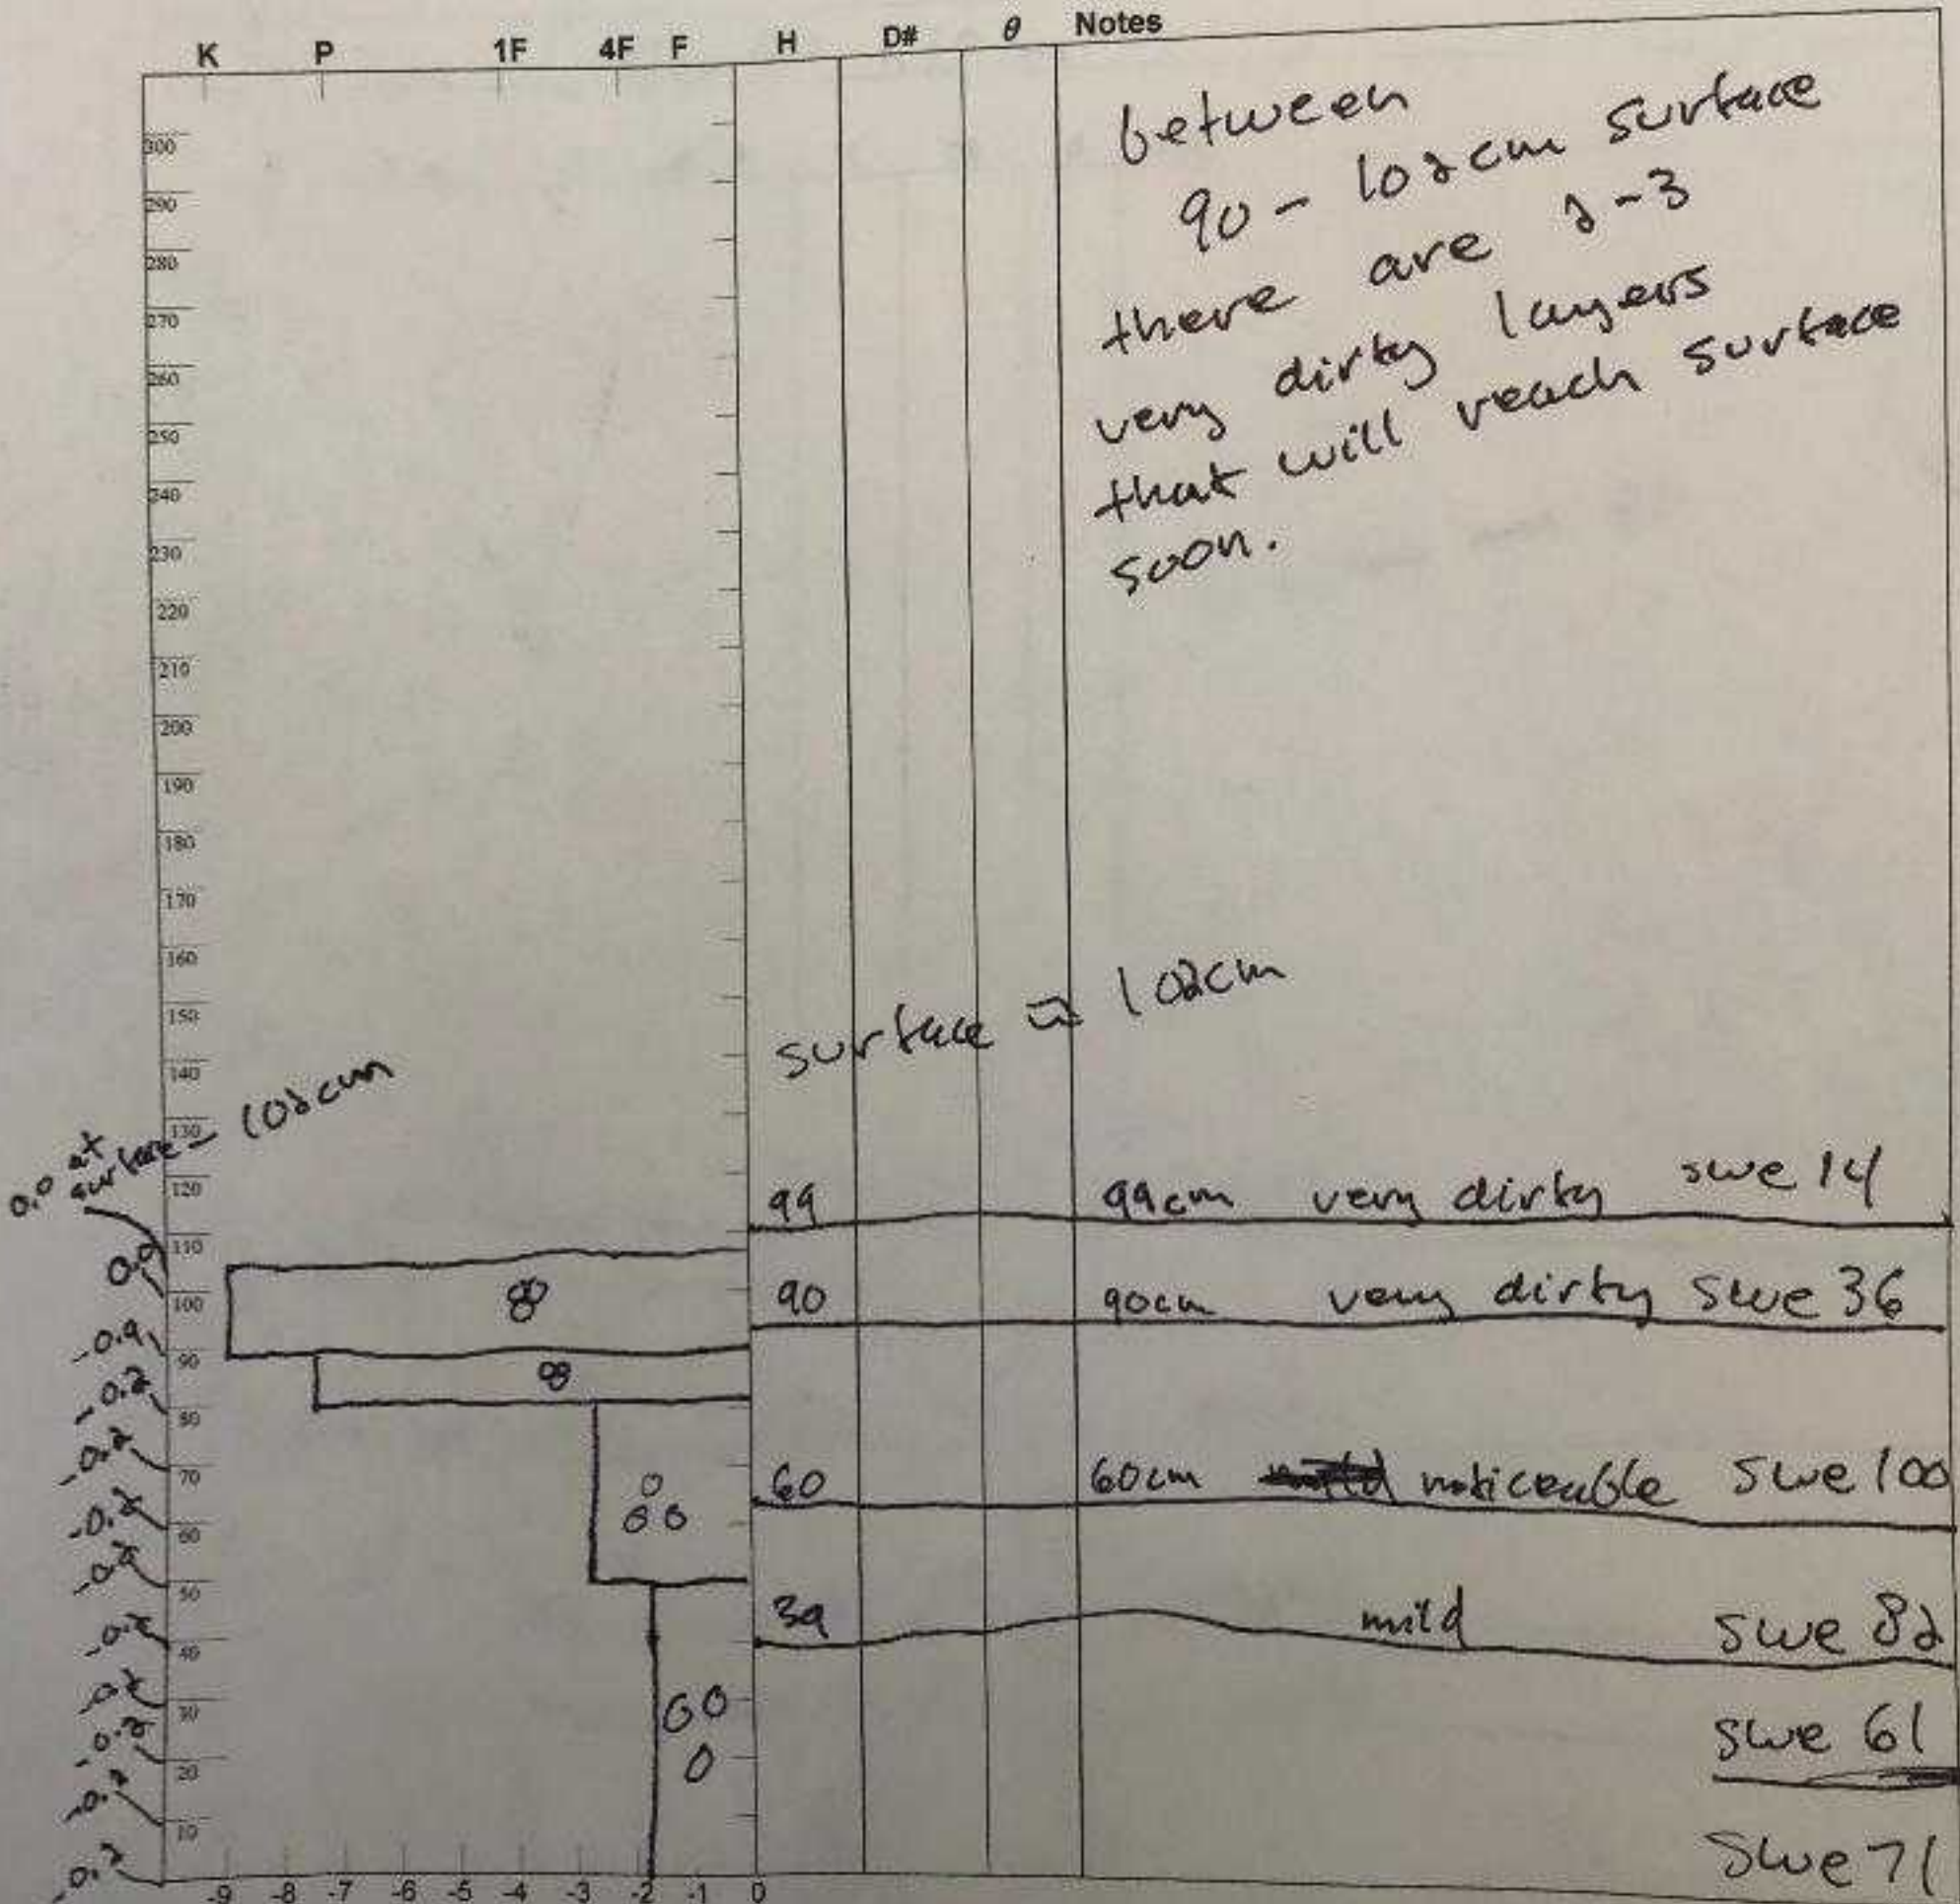 K P 1F 4F F H D# θ Notes
300
290
280
270
260
250
240
230
220
210
200
190
180
170
160
150
140
130
120
110
100
90
80
70
60
50
40
30
20
10
-9 -8 -7 -6 -5 -4 -3 -2 -1 0
between
90 - 102cm surface
there are 2-3
very dirty layers
that will reach surface
soon.
surface = 102cm
0.0 at surface - 102cm
0.0
-0.9
-0.2
-0.2
-0.2
-0.2
-0.2
-0.2
-0.2
-0.2
-0.2
99 99cm very dirty swe 14
90 90cm very dirty swe 36
60 60cm noticeable swe 100
39 mild swe 82
swe 61
swe 71